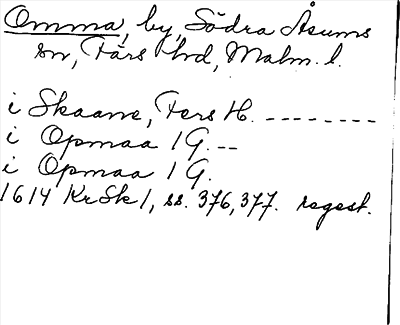 Omma, by, Södra Åsums
sn, Färs hd, Malm. l.
i Skaane, Fers H. --------
i Opmaa 1 G. --
i Opmaa 1 G.
1614 KrSk 1, ss. 376, 377. regest.